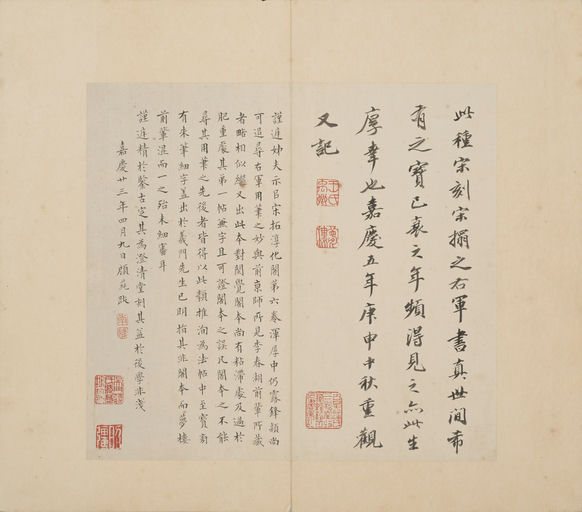 此種宋刻宋搨之右軍書真世間希
有之寶已衰之年頻得見之亦此生
厚幸也嘉慶五年庚申中秋重觀
又記
謹庭姊夫示吕宋拓淳化閣第六卷渾厚中仍露鋒穎尚
可追尋右軍用筆之妙與前京師所見李春湖前輩所藏
者略相似繼又出此本對閱覺閣本尚有粘滯處及過於
肥重處其第一帖無字且可證閣本之誤凡閣本之不能
尋其用筆之先後者皆得以此類推洵為法帖中至寶前
有朱筆細字蓋出於義門先生已明指其非閣本而夢樓
前輩混而一之殆未細審耳
謹庭精於鑒古定其為澄清堂刻其益於後學非淺
嘉慶廿三年四月九日顧莼跋